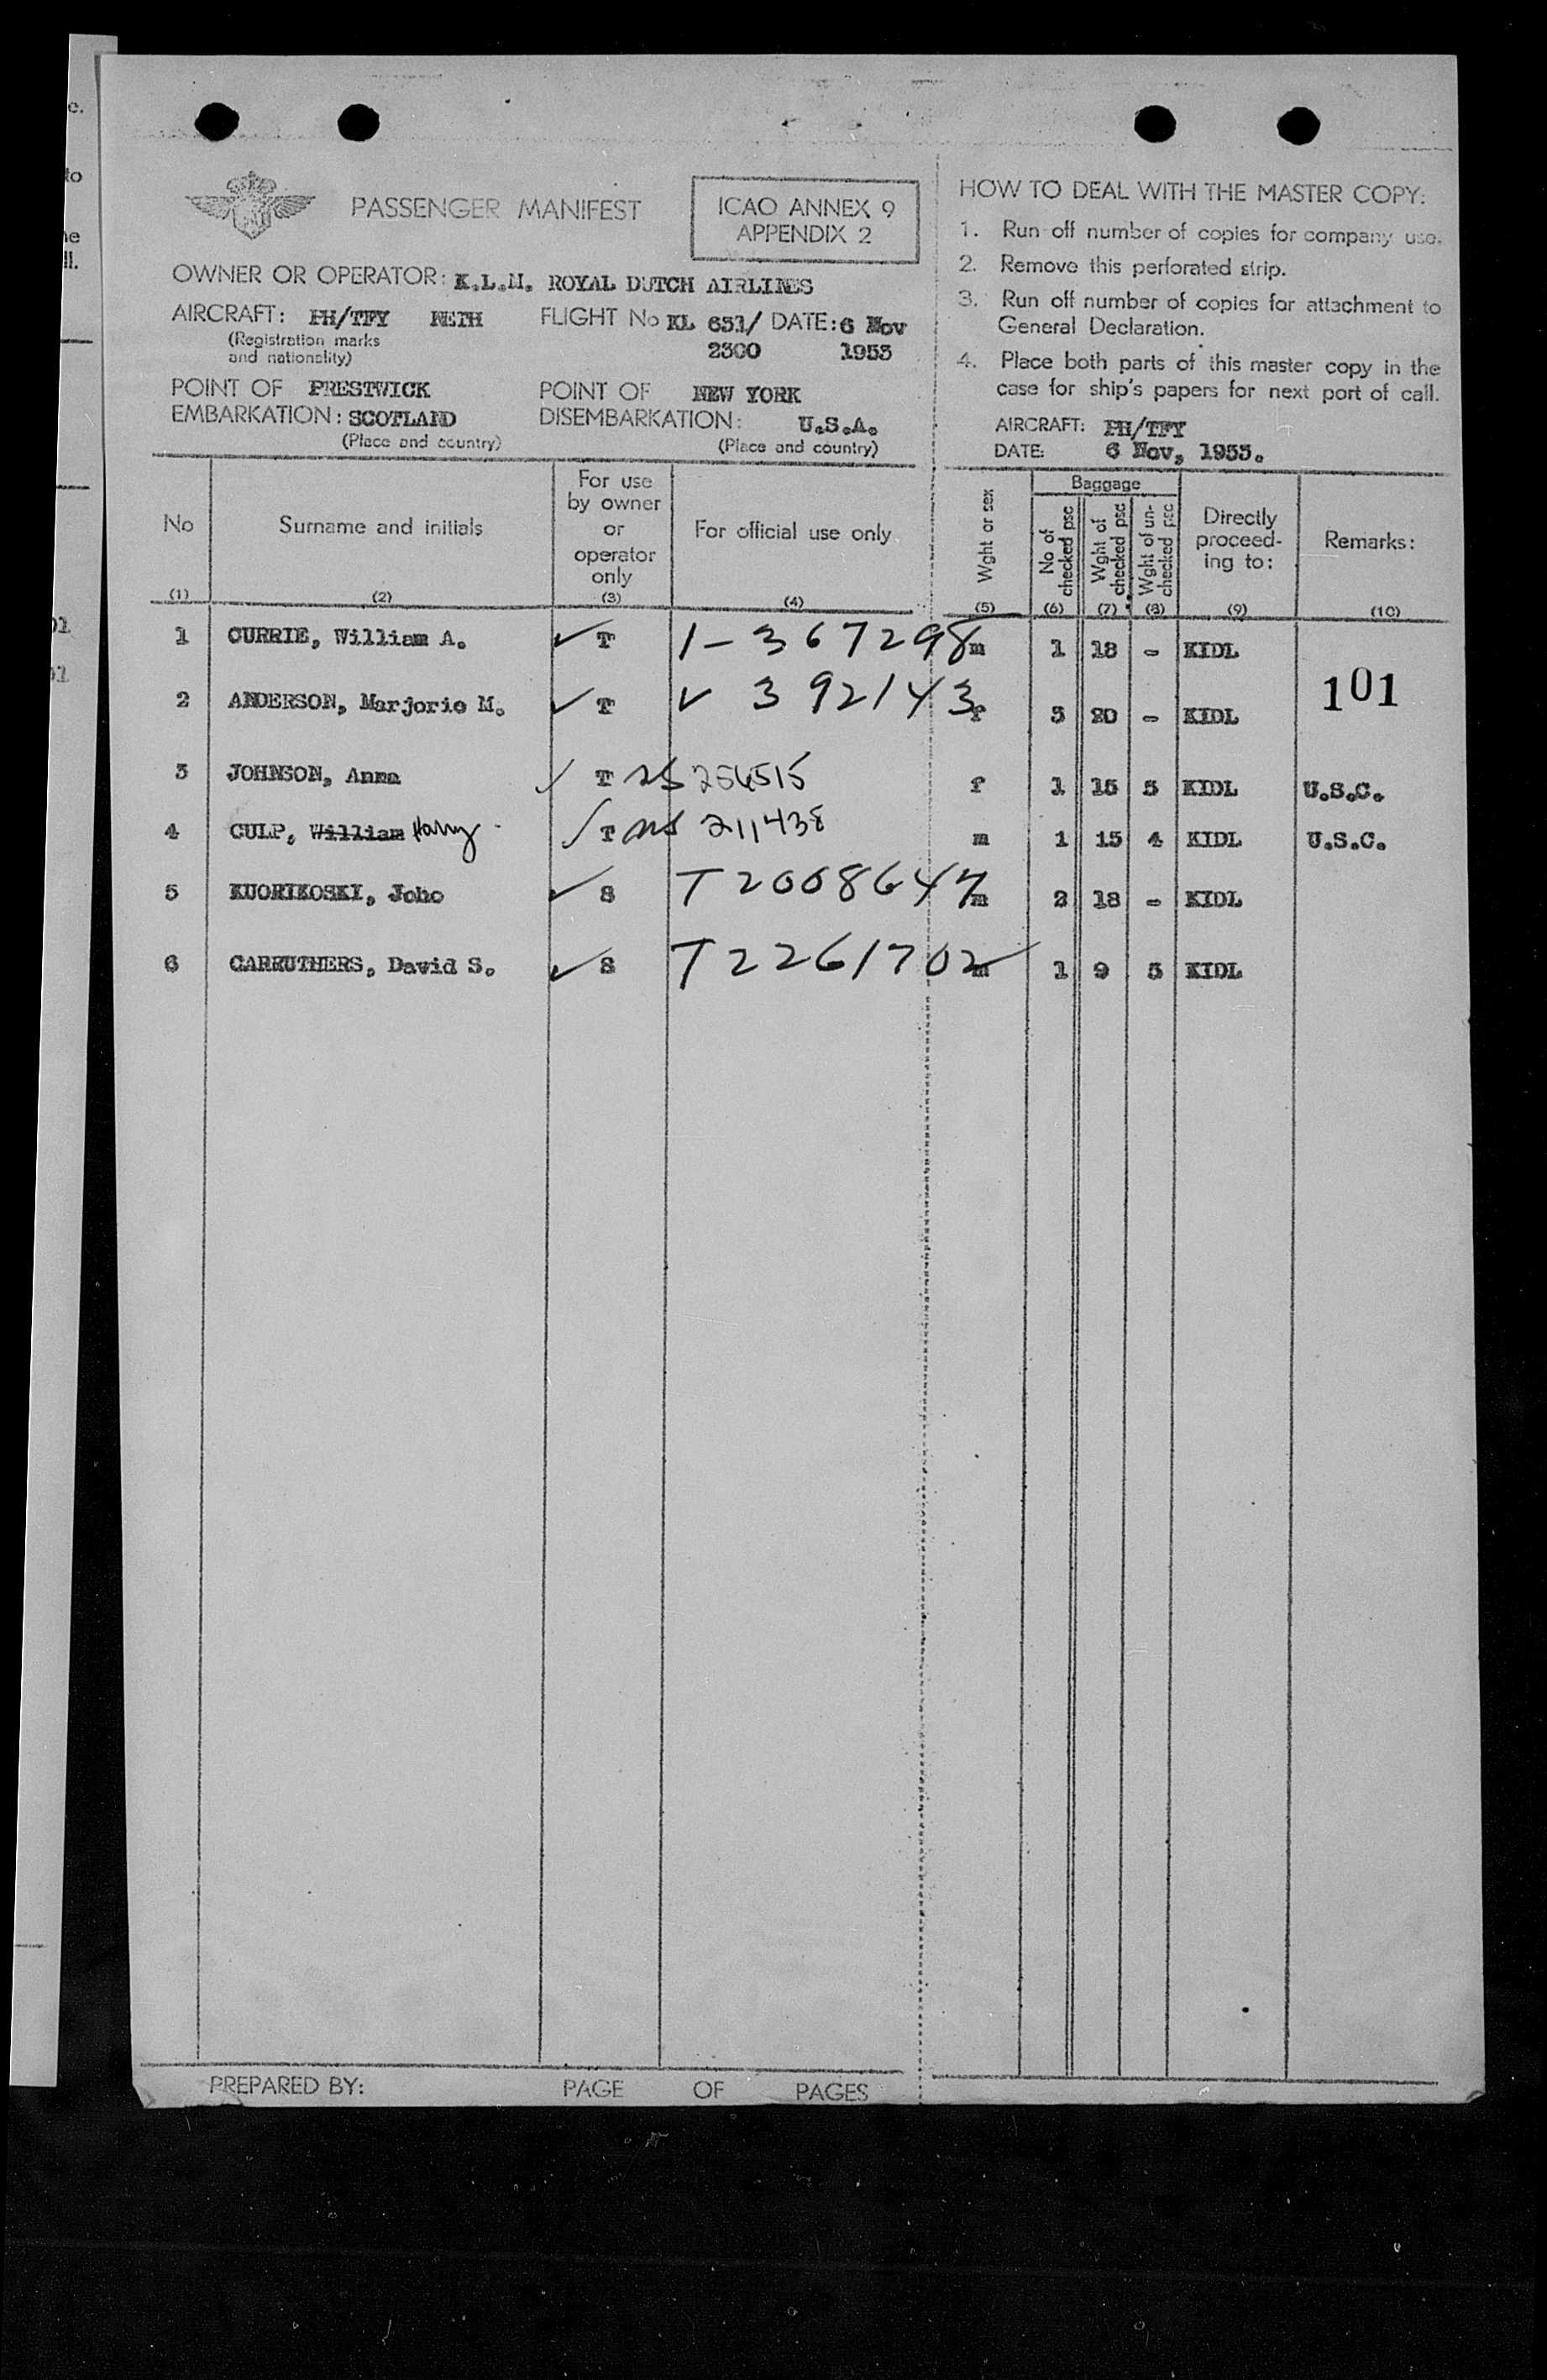 PASSENGER MANIFEST
ICAO ANNEX 9
APPENDIX 2
OWNER OR OPERATOR: K.L.M. ROYAL DUTCH AIRLINES
AIRCRAFT: PH/TFY NETH FLIGHT No KL 651/ DATE: 6 Nov
(Registration marks
and nationality) 2300 1953
POINT OF PRESTWICK POINT OF NEW YORK
EMBARKATION: SCOTLAND DISEMBARKATION: U.S.A.
(Place and country) (Place and country)
HOW TO DEAL WITH THE MASTER COPY:
1. Run off number of copies for company use.
2. Remove this perforated strip.
3. Run off number of copies for attachment to
General Declaration.
4. Place both parts of this master copy in the
case for ship's papers for next port of call.
AIRCRAFT: PH/TFY
DATE: 6 Nov, 1953.
No
(1)
Surname and initials
(2)
For use
by owner
or
operator
only
(3)
For official use only
(4)
Wght or sex
(5)
Baggage
No of
checked psc
(6)
Wght of
checked psc
(7)
Wght of un-
checked psc
(8)
Directly
proceed-
ing to:
(9)
Remarks:
(10)
1 CURRIE, William A. ✓ T 1-367298 m 1 18 - KIDL
101
2 ANDERSON, Marjorie M. ✓ T V 392143 f 3 20 - KIDL
3 JOHNSON, Anna ✓ T 256515 f 1 15 5 KIDL U.S.C.
4 CULP, William Harry ✓ T 211438 m 1 15 4 KIDL U.S.C.
5 KUORIKOSKI, Joho ✓ S T2008647 m 2 18 - KIDL
6 CARRUTHERS, David S. ✓ S T2261702 m 1 9 5 KIDL
PREPARED BY: PAGE OF PAGES